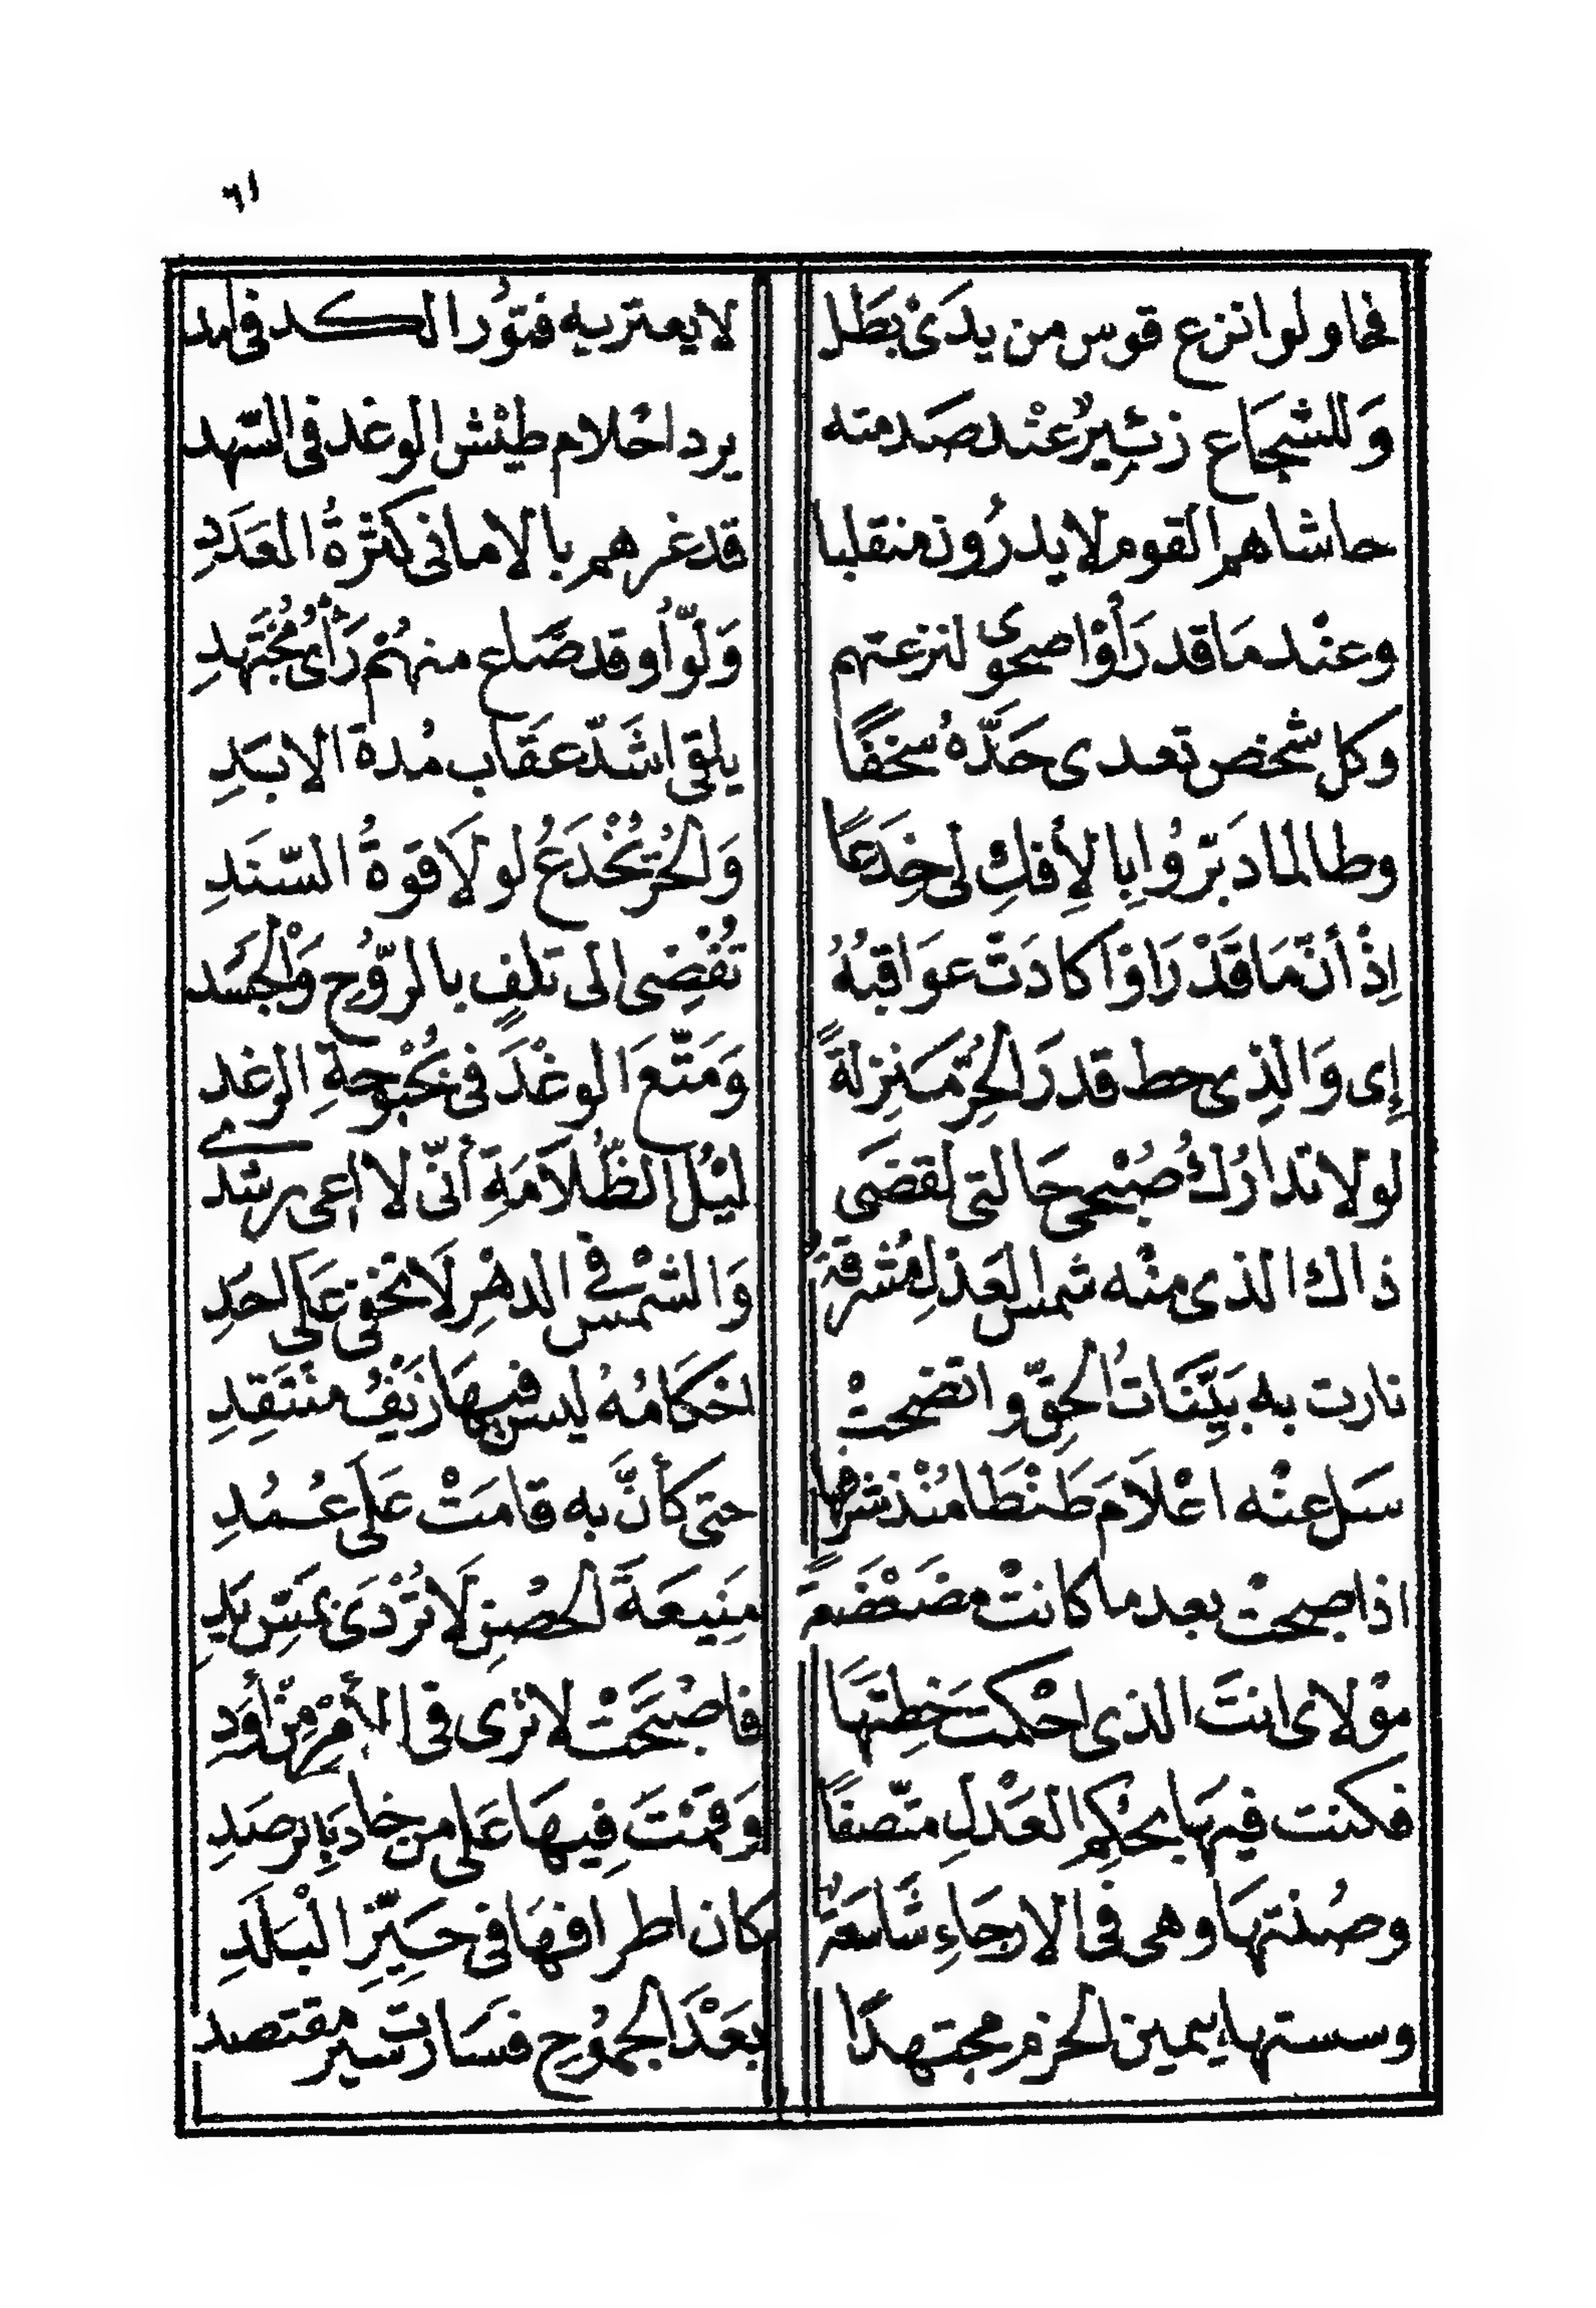 ٦١
فحاولوا نزع قوس من يدَىْ بَطَل لا يعتريه فتوُر الكد فى امد
وَللشجَاع زئِيرٌ عنْد صَدمته يرد احْلام طيْش الوغد فى السّهد
حاشاهم القوم لا يدرُون منقلبا قد غرهم بالامانى كثرةُ العَدَدِ
وعنْد مَا قد رَأوْا صحوى لنزعتهم وَلّوأ وقد ضَلع منهُمْ رَأىُ مُجْتَهدِ
وكل شخص تعدى حَدَّهُ سخفًا يلقى اشَدّ عقَاب مُدة الابَدِ
وطالما دَبّرُوا بِالأِفكِ لى خِدَعًا وَالحُرّ يُخْدَعُ لولاَ قوةُ السّنَدِ
اِذْ أنّ مَا قَدْ رَاوْا كادَتْ عوَاقبُهُ تُفْضِى الى تلفٍ بالرّوُح وَالْجسَد
إِى وَالذِى حط قدرَ الحُرّ مَنِزلةً وَمَتّعَ الوغْدَ فى بُحْبُوحةِ الرغد
لولا تدارُكُ صُبْحى حَالتى لقضَى ليْلُ الظُلاَمَةِ أنّى لا اعى رشدى
ذاك الذى منْه شمس العَدلِ مُشرقةٌ وَالشمْس فى الدهْرِ لاَ تخفى عَلى احَدِ
نارت به بَيِّنَاتُ الحقّ واتضحتْ احْكَامُهُ ليس فيهَا زَيْفُ منْتَقِدِ
سَل عنْه اعْلاَمَ طَنْطَا مُنْذ شرفها حتى كأنَّ به قامَتْ عَلَى عُمُدِ
اذ اصبحتْ بعد ما كانتْ مضَعْضَعةً مِنَيعَةَ الحصْنِ لاَ تُرْدَى بمَسِّ يَدِ
موْلاى انتَ الذى احْكمتَ خطتَهَا فاصْبَحَتْ لا ترى فى الأمْرِ مِنْ أوَدِ
فكنت فيهَا بحُكِم العَدْلِ متّصفًا وَقمْتَ فِيهَا عَلى من خادَ بِالرصَدِ
وصُنْتهَا وهى فى الارجَاءِ شَاسَعةٌ كان اطرافهَا فى حَيّزِ الْبَلَدِ
وسستها بيمين الحزم مجتهدًا بعَدْ الجموُح فسَارت سير مقتصد